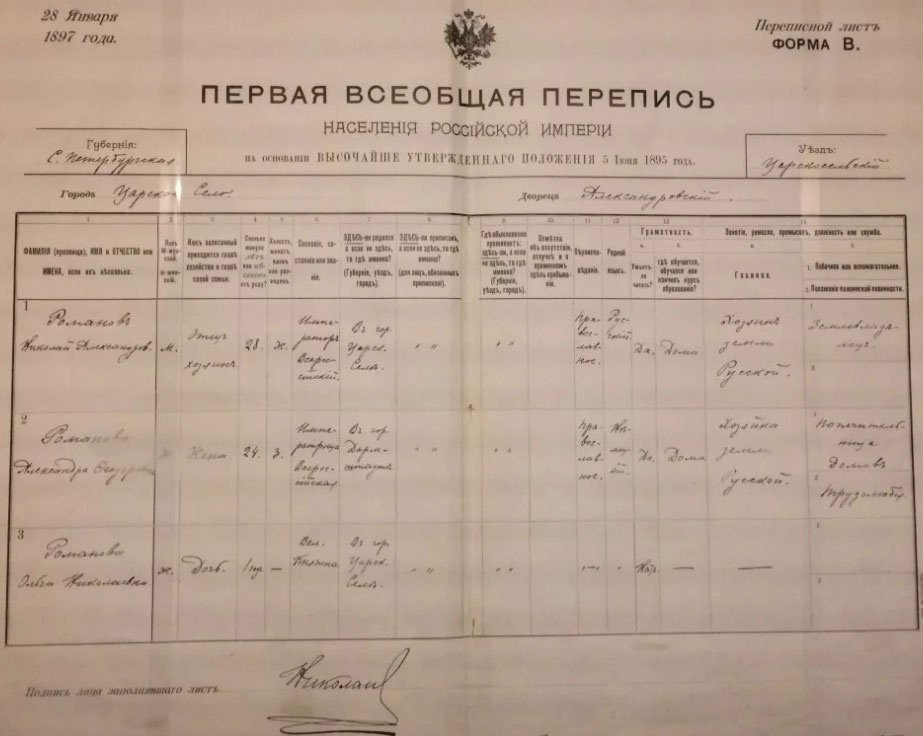 28 Января
1897 года.
Переписной листъ
ФОРМА В.
ПЕРВАЯ ВСЕОБЩАЯ ПЕРЕПИСЬ
НАСЕЛЕНІЯ РОССІЙСКОЙ ИМПЕРІИ
НА ОСНОВАНІИ ВЫСОЧАЙШЕ УТВЕРЖДЕННАГО ПОЛОЖЕНІЯ 5 Іюня 1895 года.
Губернія:
С. Петербургская
Уѣздъ:
Царскосельскій
Городъ Царское Село
Дворецъ Александровскій.
1
ФАМИЛІЯ (прозвище), ИМЯ и ОТЧЕСТВО или
ИМЕНА, если ихъ нѣсколько.
2
3
Какъ записанный
приходится главѣ
хозяйства и главѣ
своей семьи.
4
Сколько
минуло
лѣтъ
или мѣ-
сяцевъ
отъ роду?
5
Холостъ,
женатъ,
вдовъ
или раз-
веденъ.
6
Сословіе, со-
стояніе или зва-
ніе.
7
ЗДѢСЬ-ли родился
а если не здѣсь,
то гдѣ именно?
(Губернія, уѣздъ,
городъ).
8
ЗДѢСЬ-ли приписанъ,
а если не здѣсь, то гдѣ
именно?
(для лицъ, обязанныхъ
припискою).
9
Гдѣ обыкновенно
проживаетъ:
здѣсь-ли, а если
не здѣсь, то гдѣ
именно?
(Губернія,
уѣздъ, городъ).
10
Отмѣтка
объ отсутствіи,
отлучкѣ и о
временномъ
здѣсь пребыва-
ніи.
11
Вѣроиспо-
вѣданіе.
12
Родной
языкъ.
13
Грамотность.
а.
Умѣетъ
ли
читать?
б.
гдѣ обучается,
обучался или
кончилъ курсъ
образованія?
14
Занятіе, ремесло, промыселъ, должность или служба.
а.
Главное.
б
1. Побочное или вспомогательное.
2. Положеніе по воинской повинности.
1
Романовъ
Николай Александров.
М.
Отецъ
хозяинъ
28.
Ж.
Импе-
раторъ
Всерос-
сійскій.
Въ гор.
Царск.
Селѣ.
" "
" "
Пра-
вос-
лав-
ное.
Рус-
скій.
Да.
Дома
Хозяинъ
земли
Русской.
Землевладѣ-
лецъ.
2
Романова
Александра Феодоровна
Ж
Жена
24.
З.
Импе-
ратрица
Всерос-
сійская
Въ гор.
Дарм-
штадтѣ
" "
" "
Пра-
вос-
лав-
ное.
Нѣ-
мец-
кій.
Да.
Дома
Хозяйка
земли
Русской.
1
Попечитель-
ница
домовъ
2
трудолюбія
3
Романова
Ольга Николаевна
Ж.
Дочь.
—
Вел.
Княжна
Въ гор.
Царск.
Селѣ.
" "
" "
"—"
"
Нѣт.
—
—
1
2
Подпись лица заполнявшаго листъ
Николай